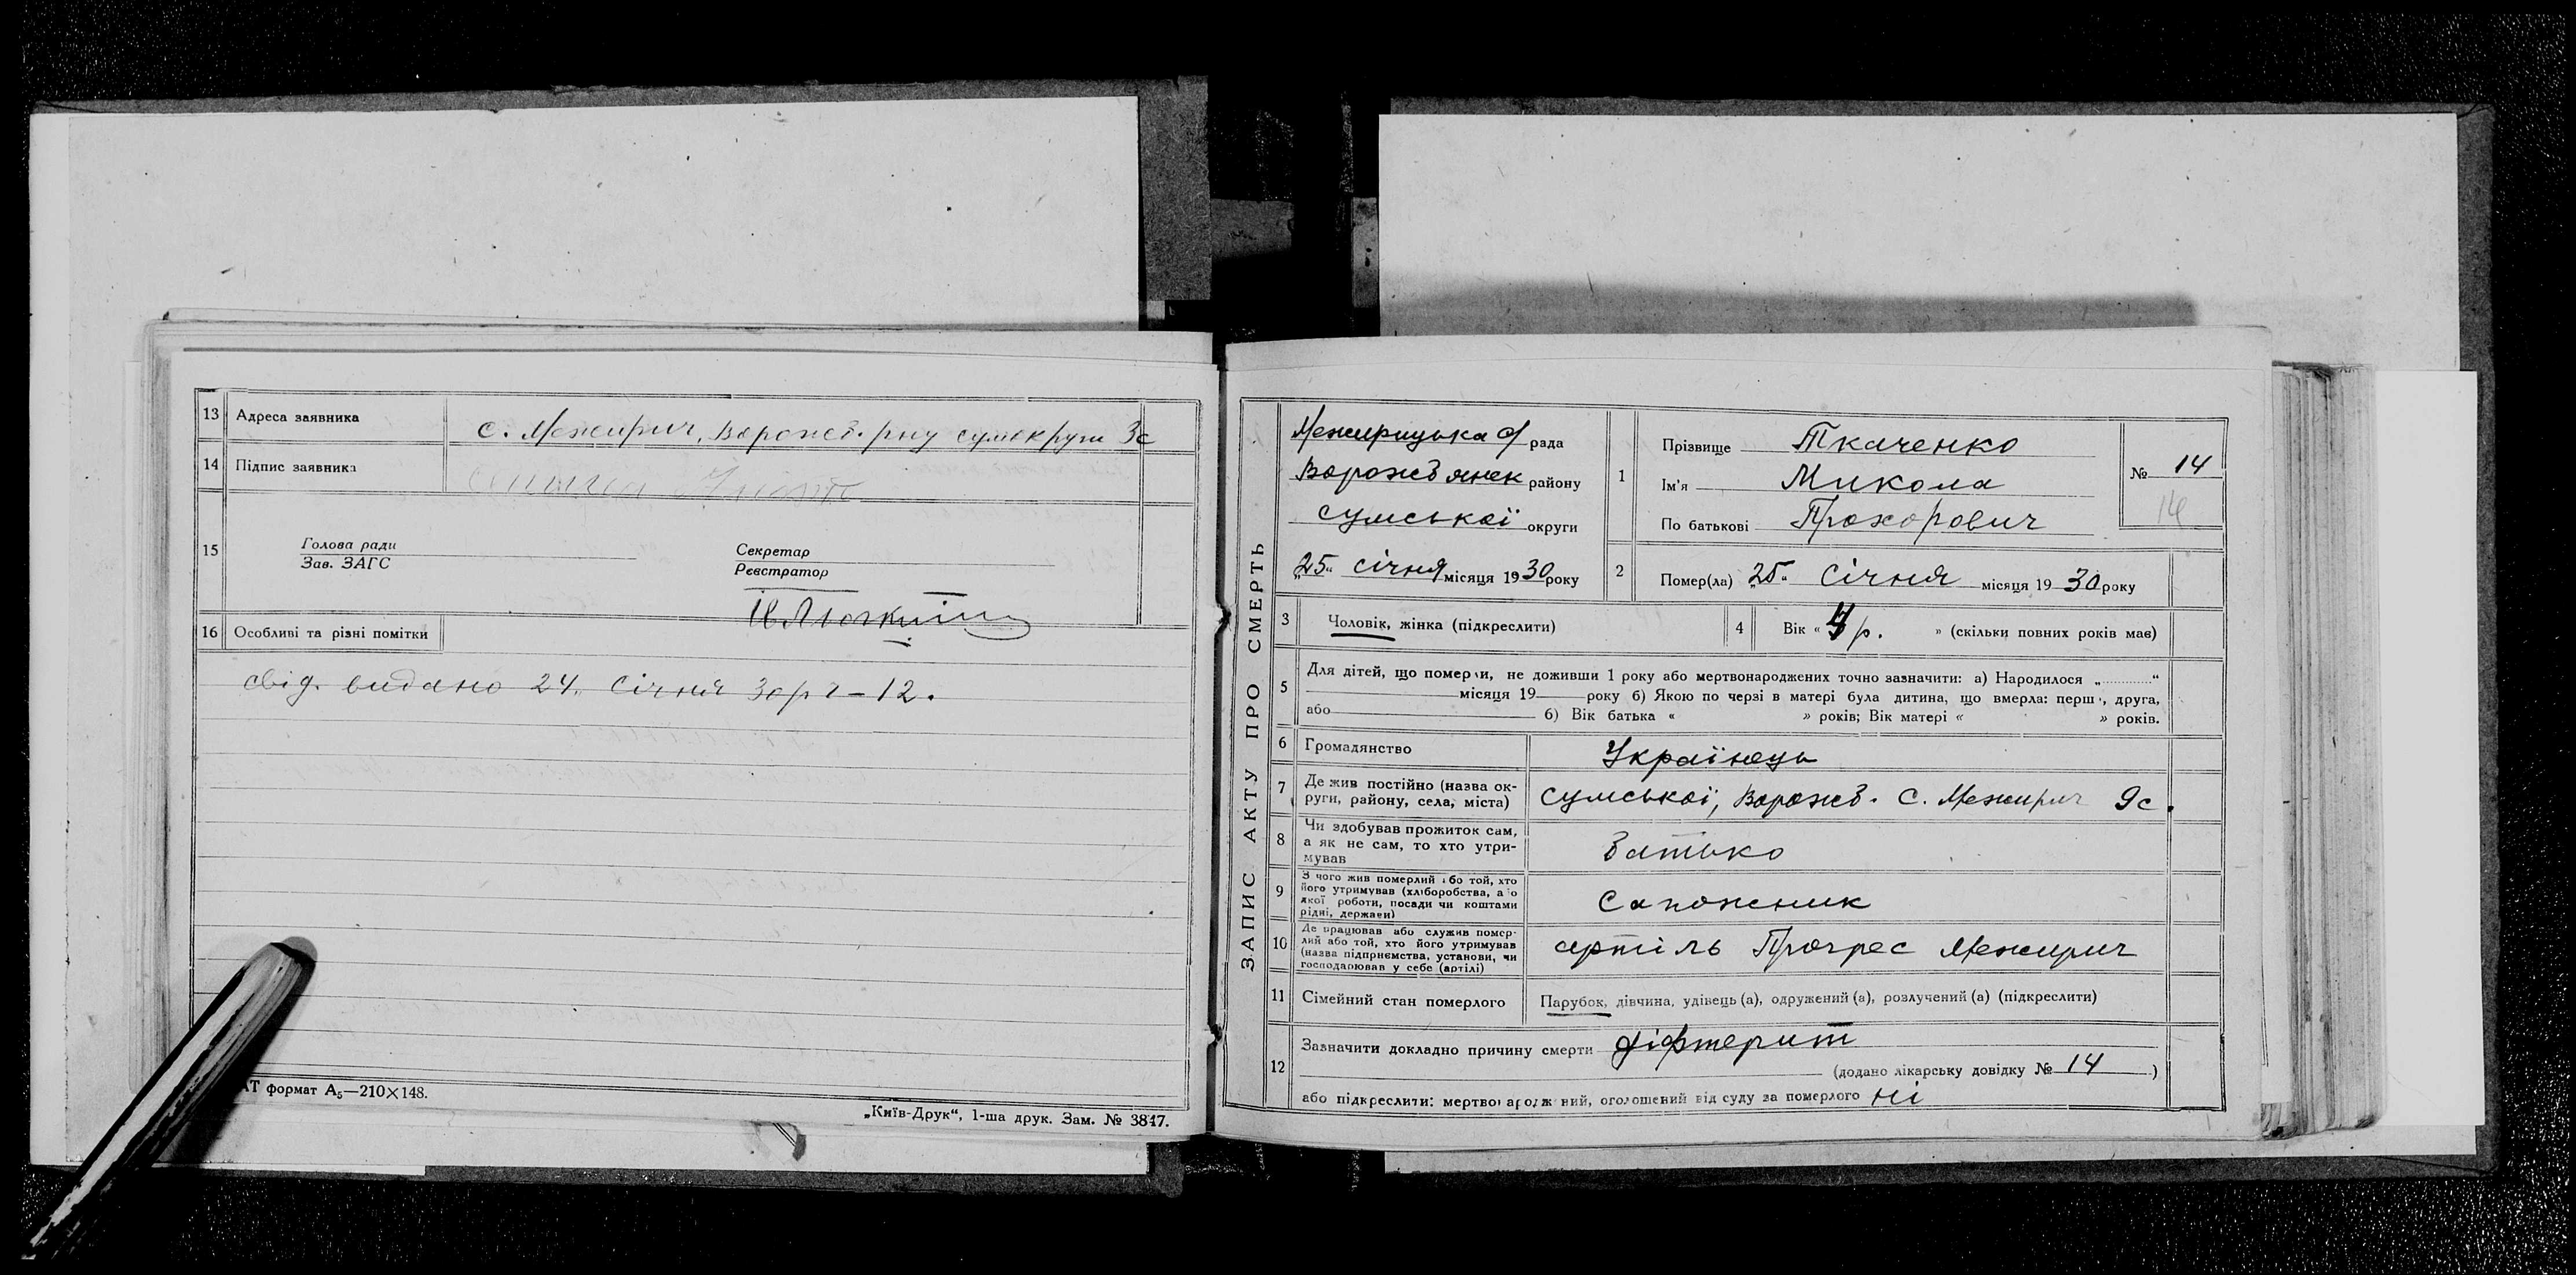 13 Адреса заявника с. Межирич, Ворожб. р-ну сумокруги 3с
14 Підпис заявника
15
Голова ради
Зав. ЗАГС
Секретар
Реєстратор
16 Особливі та різні помітки
свід. видано 24. Січня 30 р 2-12.
АТ формат А5—210×148.
„Київ-Друк“, 1-ша друк. Зам. № 3847.
ЗАПИС АКТУ ПРО СМЕРТЬ
Межирицька рада
Ворожбянск району
Сумської округи
„25“ січня місяця 1930 року
1 Прізвище Ткаченко
Ім'я Микола
По батькові Прохорович
№ 14
14
2 Помер(ла) „25“ Січня місяця 1930 року
3 Чоловік, жінка (підкреслити)
4 Вік « 4 р. » (скільки повних років має)
5 Для дітей, що померли, не доживши 1 року або мертвонароджених точно зазначити: а) Народилося „ “
місяця 19 року б) Якою по черзі в матері була дитина, що вмерла: перш , друга,
або б) Вік батька « » років; Вік матері « » років.
6 Громадянство Українець
7 Де жив постійно (назва ок-
руги, району, села, міста) Сумської, Ворожб. С. Межирич 9с.
8 Чи здобував прожиток сам,
а як не сам, то хто утри-
мував Батько
9 З чого жив померлий або той, хто
його утримував (хліборобства, або
якої роботи, посади чи коштами
рідні, держави) Сапожник
10 Де працював або служив помер-
лий або той, хто його утримував
(назва підприємства, установи, чи
господарював у себе (артілі) артіль Прогрес Межирич
11 Сімейний стан померлого Парубок, дівчина, удівець (а), одружений (а), розлучений (а) (підкреслити)
12 Зазначити докладно причину смерти Діфтерит
(додано лікарську довідку № 14 )
або підкреслити: мертвонароджений, оголошений від суду за померлого ні